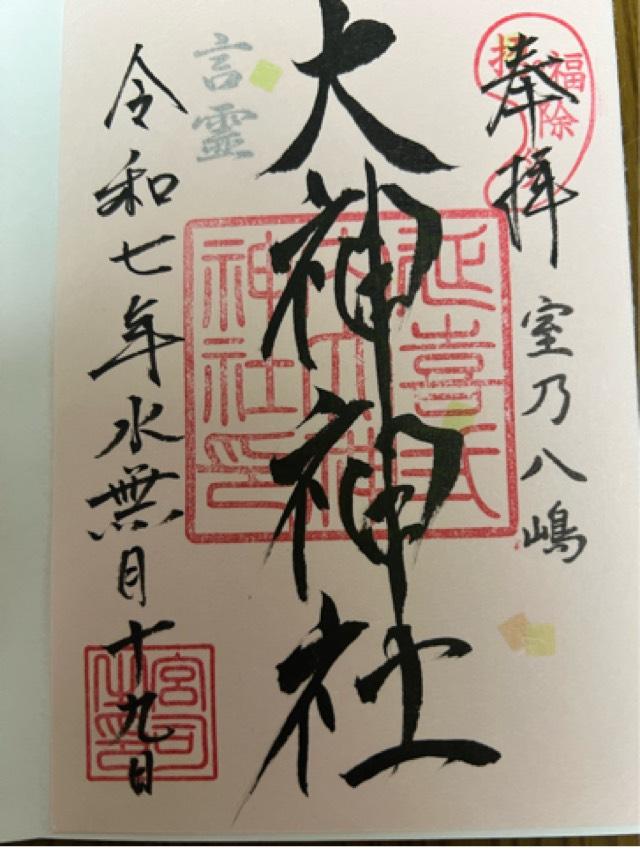 奉拝
室乃八嶋
福除
延喜式
内大神
神社印
大神神社
言霊
令和七年水無月十九日
宮司
之印